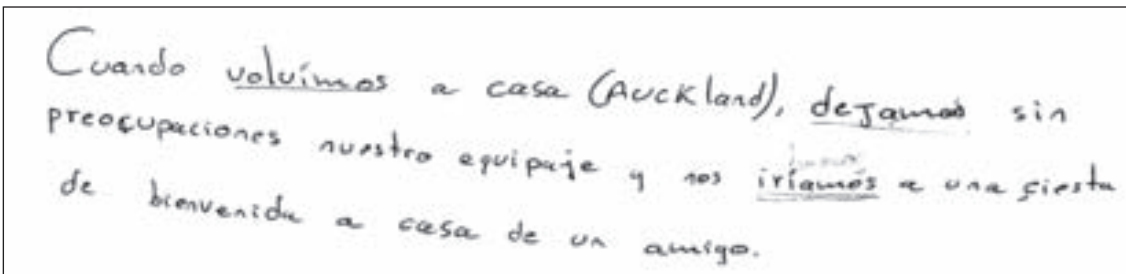 Cuando volvímos a casa (Auckland), dejamos sin
preocupaciones nuestro equipaje y nos iríamos a una fiesta
de bienvenida a casa de un amigo.